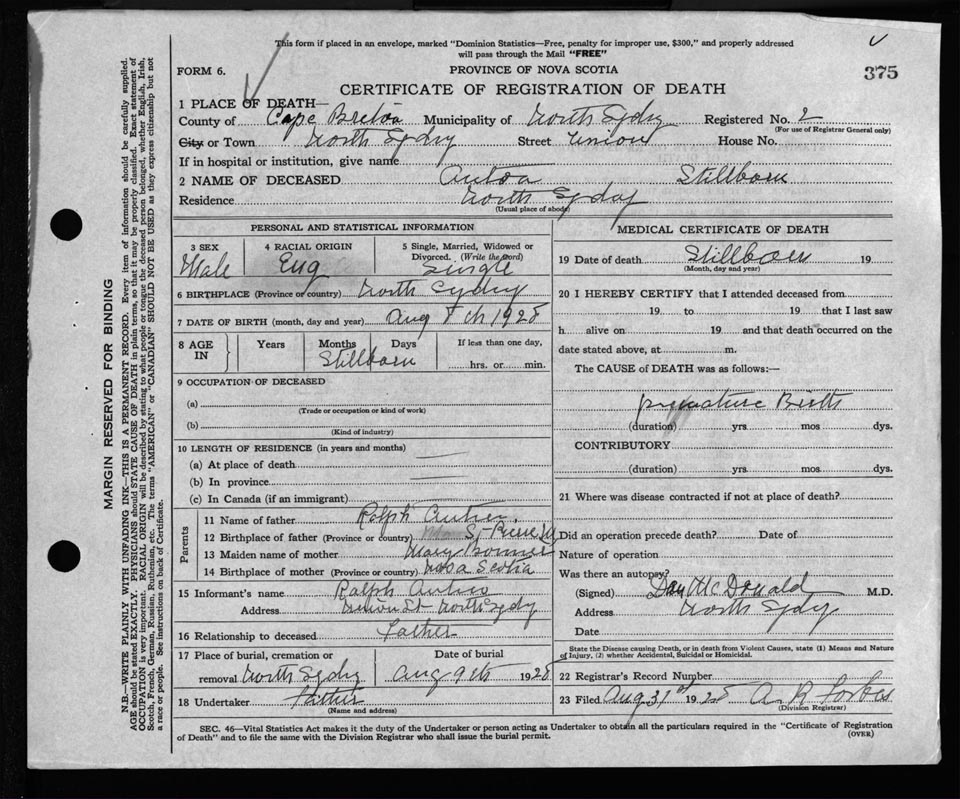 This form if placed in an envelope, marked "Dominion Statistics—Free, penalty for improper use, $300," and properly addressed
will pass through the Mail "FREE"
FORM 6.
PROVINCE OF NOVA SCOTIA
375
CERTIFICATE OF REGISTRATION OF DEATH
1 PLACE OF DEATH—
County of Cape Breton Municipality of North Sydney Registered No. 2
(For use of Registrar General only)
City or Town North Sydney Street Union House No.
If in hospital or institution, give name
2 NAME OF DECEASED Stillborn
Residence North Sydney
(Usual place of abode)
PERSONAL AND STATISTICAL INFORMATION
3 SEX 4 RACIAL ORIGIN 5 Single, Married, Widowed or
Divorced. (Write the word)
Male Eng Single
6 BIRTHPLACE (Province or country) North Sydney
7 DATE OF BIRTH (month, day and year) Aug 8th 1928
8 AGE IN Years Months Days If less than one day,
Stillborn hrs. or min.
9 OCCUPATION OF DECEASED
(a)
(Trade or occupation or kind of work)
(b)
(Kind of industry)
10 LENGTH OF RESIDENCE (in years and months)
(a) At place of death
(b) In province
(c) In Canada (if an immigrant)
Parents
11 Name of father Ralph
12 Birthplace of father (Province or country)
13 Maiden name of mother Mary
14 Birthplace of mother (Province or country) Nova Scotia
15 Informant's name Ralph
Address Union St North Sydney
16 Relationship to deceased Father
17 Place of burial, cremation or Date of burial
removal North Sydney Aug 9th 1928
18 Undertaker Father
(Name and address)
MEDICAL CERTIFICATE OF DEATH
19 Date of death Stillborn 19
(Month, day and year)
20 I HEREBY CERTIFY that I attended deceased from
19 to 19 that I last saw
h alive on 19 and that death occurred on the
date stated above, at m.
The CAUSE of DEATH was as follows:—
premature Birth
(duration) yrs. mos dys.
CONTRIBUTORY
(duration) yrs. mos dys.
21 Where was disease contracted if not at place of death?
Did an operation precede death? Date of
Nature of operation
Was there an autopsy?
(Signed) Dan McDonald M.D.
Address North Sydney
Date
State the Disease causing Death, or in death from Violent Causes, state (1) Means and Nature
of Injury, (2) whether Accidental, Suicidal or Homicidal.
22 Registrar's Record Number
23 Filed Aug 31st 1928 A. R. Forbes
(Division Registrar)
SEC. 46—Vital Statistics Act makes it the duty of the Undertaker or person acting as Undertaker to obtain all the particulars required in the "Certificate of Registration
of Death" and to file the same with the Division Registrar who shall issue the burial permit.
(OVER)
MARGIN RESERVED FOR BINDING
N.B.—WRITE PLAINLY WITH UNFADING INK—THIS IS A PERMANENT RECORD. Every item of information should be carefully supplied.
AGE should be stated EXACTLY. PHYSICIANS should STATE CAUSE OF DEATH in plain terms, so that it may be properly classified. Exact statement of
OCCUPATION is very important. RACIAL ORIGIN will be described by stating to what people or tongue the deceased person belonged, whether English, Irish,
Scotch, French, German, Russian, Ruthenian, etc. The terms "AMERICAN" or "CANADIAN" SHOULD NOT BE USED as they express citizenship but not
a race or people. See instructions on back of Certificate.